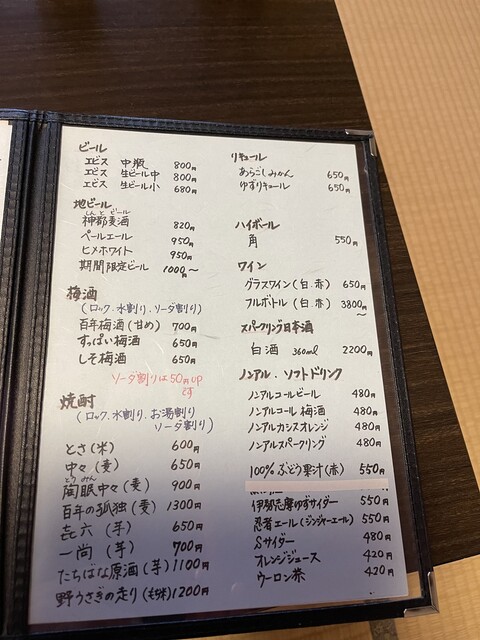 ビール
エビス 中瓶 800円
エビス 生ビール中 800円
エビス 生ビール小 680円
地ビール
しんとビール
神都麦酒 820円
ペールエール 950円
ヒメホワイト 950円
期間限定ビール 1000円〜
梅酒
(ロック、水割り、ソーダ割り)
百年梅酒(甘め) 700円
すっぱい梅酒 650円
しそ梅酒 650円
ソーダ割りは50円UP
です
焼酎
(ロック、水割り、お湯割り
ソーダ割り)
とさ(米) 600円
中々(麦) 650円
とうみん
陶眠中々(麦) 900円
百年の孤独(麦) 1300円
㐂六(芋) 650円
一尚(芋) 700円
たちばな原酒(芋) 1100円
野うさぎの走り(もち米) 1200円
リキュール
あらごしみかん 650円
ゆずリキュール 650円
ハイボール
角 550円
ワイン
グラスワイン(白.赤) 650円
フルボトル(白.赤) 3800円〜
スパークリング日本酒
白酒 360ml 2200円
ノンアル.ソフトドリンク
ノンアルコールビール 480円
ノンアルコール梅酒 480円
ノンアルカシスオレンジ 480円
ノンアルスパークリング 480円
100%ぶどう果汁(赤) 550円
伊勢志摩ゆずサイダー 550円
忍者エール(ジンジャーエール) 550円
Sサイダー 480円
オレンジジュース 420円
ウーロン茶 420円